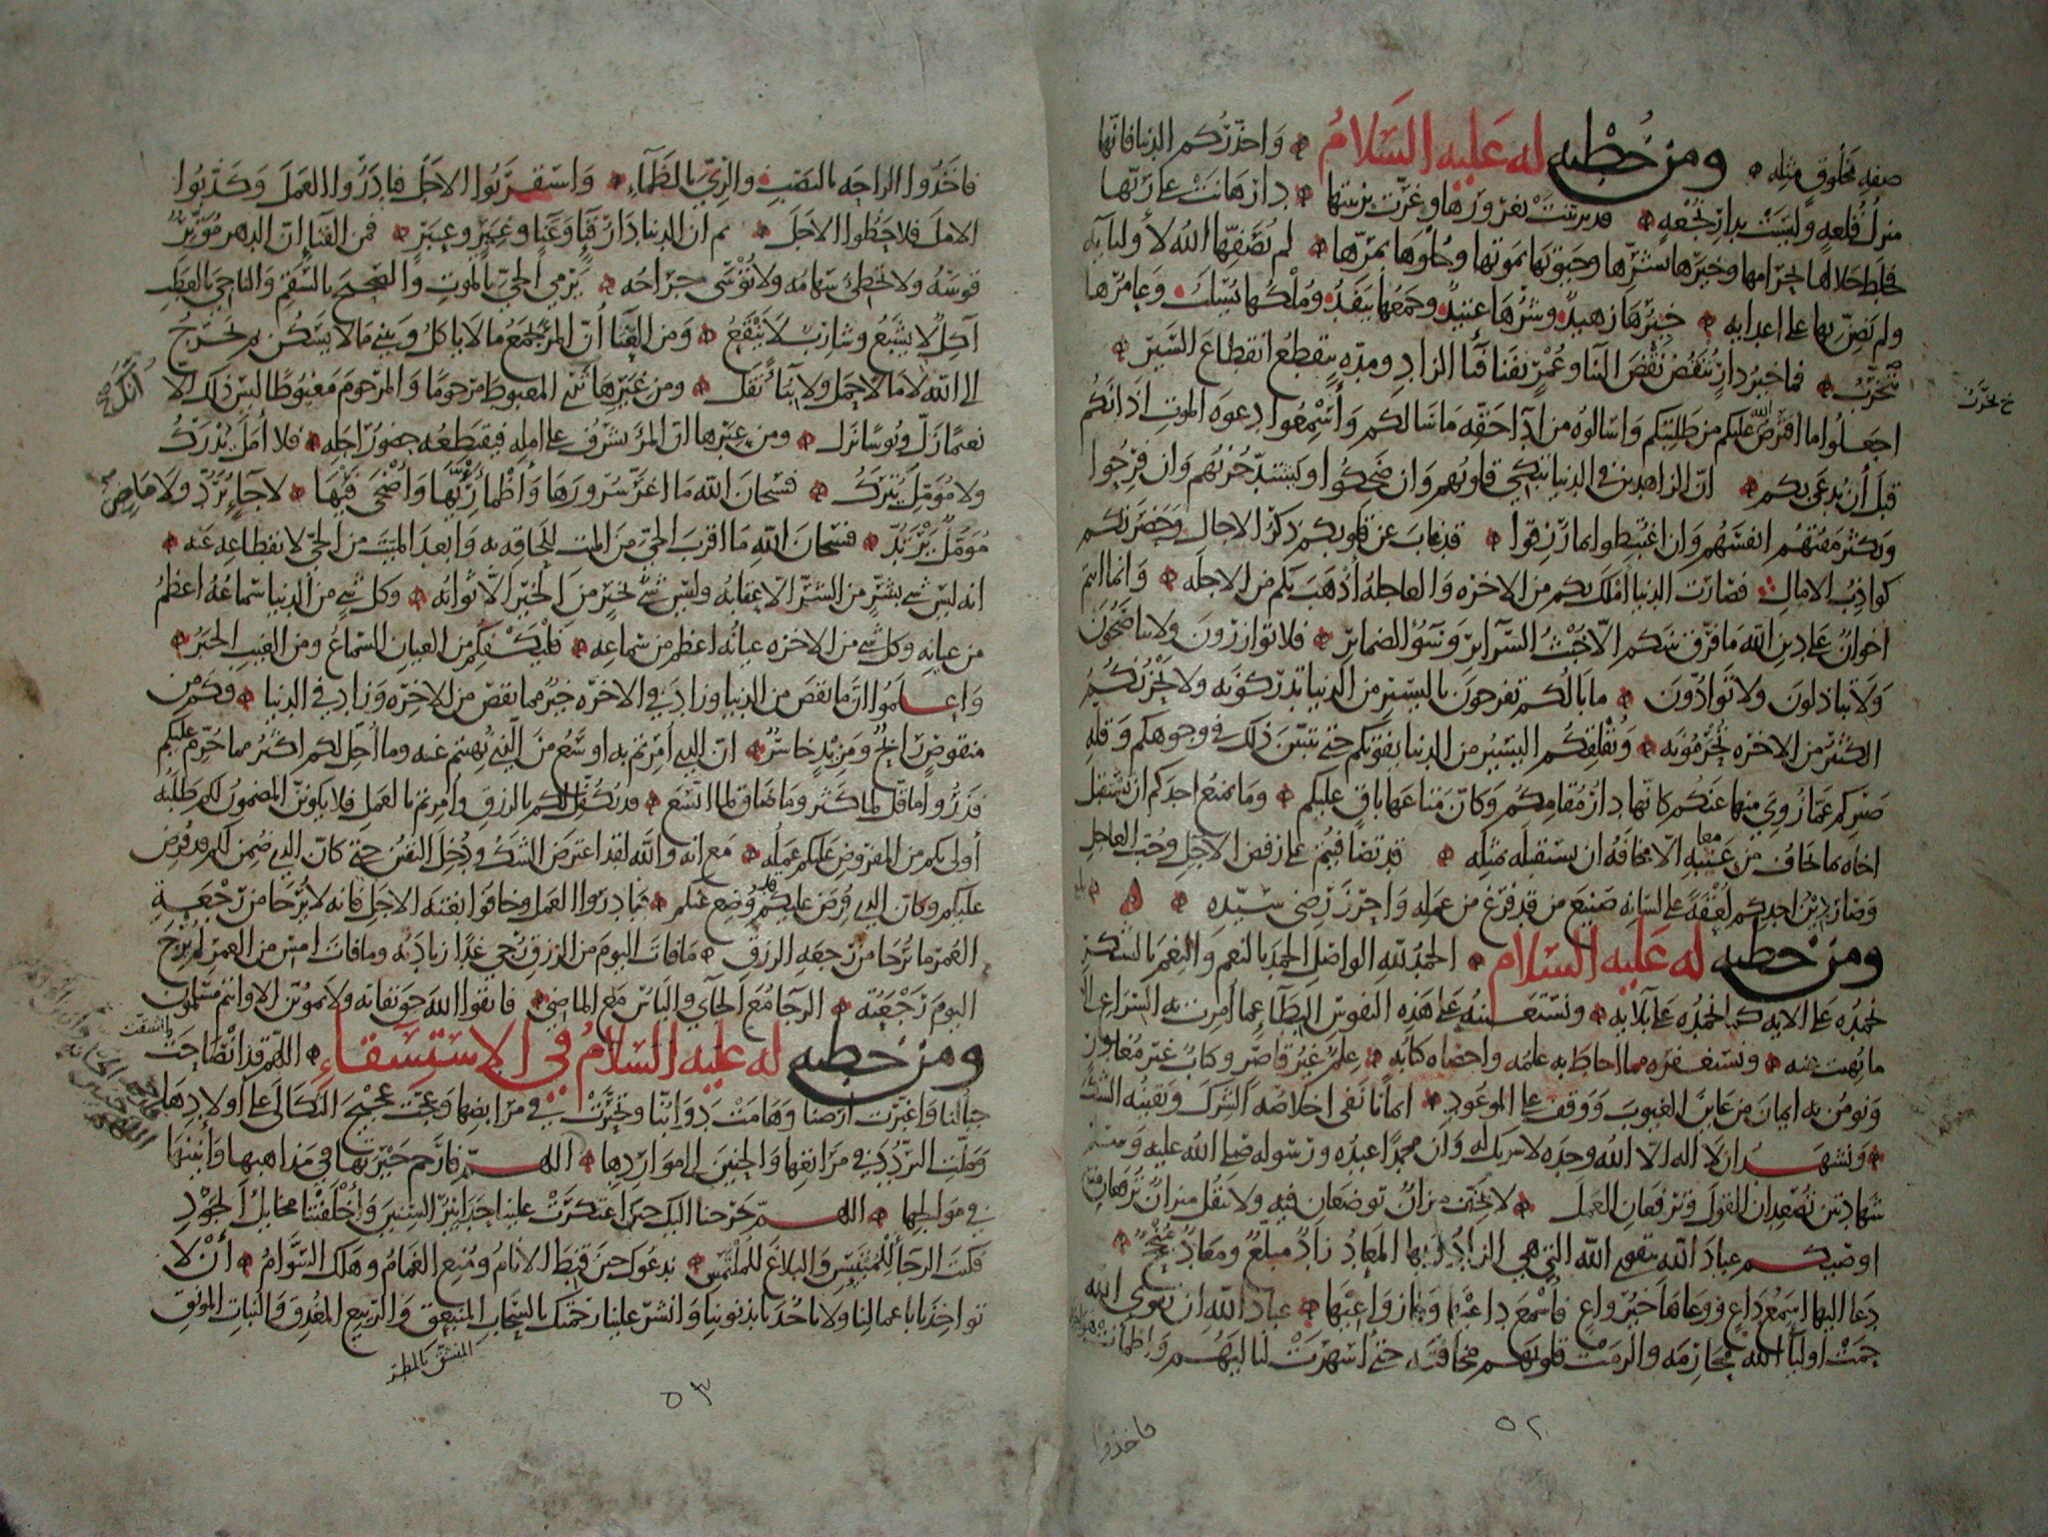 صفه مخلوق مثله ومن خطبه له عليه السلام واحذركم الدنيا فانها
منزل قلعه وليست بدار نجعه قد تزينت بغرورها وغرت بزينتها دار هانت على ربها
فخلط حلالها بحرامها وخيرها بشرها وحيوتها بموتها وحلوها بمرها لم يصفها الله لأوليائه
ولم يضن بها على اعدائه خيرها زهيد وشرها عتيد وجمعها ينفد وملكها يسلب وعامرها
يخرب فما خير دار تنقض نقض البنا وعمر يفنا فنا الزاد ومده تنقطع انقطاع السير
خ يخرب
اجعلوا ما افترض الله عليكم من طلبتكم واسالوه من ادا حقه ما سالكم وأسمعوا دعوه الموت اذانكم
قبل أن يدعى بكم ان الزاهدين في الدنيا تبكي قلوبهم وان ضحكوا ويشتد حزنهم وان فرحوا
ويكثر مقتهم انفسهم وان اغتبطوا بما رزقوا قد غاب عن قلوبكم ذكر الاجال وحضرتكم
كواذب الامال فصارت الدنيا املك بكم من الاخره والعاجله أذهب بكم من الاجله وانما انتم
اخوان على دين الله ما فرق بينكم الا خبث السرائر وسوء الضمائر فلا توازرون ولا تناصحون
ولا تباذلون ولا توادون ما بالكم تفرحون باليسير من الدنيا تدركونه ولا يحزنكم
الكثير من الاخره تحرمونه ويقلقكم اليسير من الدنيا يفوتكم حتى يتبين ذلك في وجوهكم وقله
صبركم عما زوي منها عنكم كانها دار مقامكم وكان متاعها باق عليكم وما يمنع احدكم ان يستقبل
اخاه بما يخاف من عيبه الا مخافه ان يستقبله بمثله قد تصافيتم على رفض الاجل وحب العاجل
وصار دين احدكم لعقة على لسانه صنيع من قد فرغ من عمله واحرز رضى سيده
ومن خطبه له عليه السلام الحمد لله الواصل الحمد بالنعم والنعم بالشكر
نحمده على الايه كما نحمده على بلائه ونستعينه على هذه النفوس البطاء عما امرت به السراع الى
ما نهيت عنه ونستغفره مما احاط به علمه واحصاه كتابه علم غير قاصر وكتاب غير مغادر
ونومن به ايمان من عاين الغيوب ووقف على الموعود ايمانا نفى اخلاصه الشرك ويقينه الشك
ونشهد ان لا اله الا الله وحده لا شريك له وان محمدا عبده ورسوله صلى الله عليه وسلم
شهادتين تصعدان القول وترفعان العمل لا يخف ميزان توضعان فيه ولا يثقل ميزان ترفعان منه
اوصيكم عباد الله بتقوى الله التي هي الزاد وبها المعاد زاد مبلغ ومعاد منجح
دعا اليها اسمع داع ووعاها خير واع فأسمع داعيها وفاز واعيها عباد الله ان تقوى الله
حمت اوليا الله محارمه والزمت قلوبهم مخافته حتى اسهرت لياليهم واظمأت هواجرهم
فاخذوا
٥٢
فاخذوا الراحه بالنصب والري بالظماء واستقربوا الاجل فبادروا العمل وكذبوا
الامل فلاحظوا الاجل ثم ان الدنيا دار فناء وعناء وغير وعبر فمن الفناء ان الدهر موتر
قوسه ولا تخطئ سهامه ولا توسى جراحه يرمي الحي بالموت والصحيح بالسقم والناجي بالعطب
آكل لا يشبع وشارب لا ينقع ومن العنا أن المرء يجمع ما لا ياكل ويبني ما لا يسكن ثم يخرج
الى الله لا مالا حمل ولا بناء نقل ومن غيرها انك ترى المغبوط مرحوما والمرحوم مغبوطا ليس ذلك الا
نعيما زل وبوسا نزل ومن عبرها ان المرء يشرف على امله فيقتطعه حضور اجله فلا أمل يدرك
ولا مؤمل يترك فسبحان الله ما اغر سرورها وأظمأ ريها وأضحى فيئها لا جاء يرد ولا ماض
يرتد فسبحان الله ما اقرب الحي من الميت للحاقه به وابعد الميت من الحي لانقطاعه عنه
انه ليس شي بشر من الشر الا عقابه وليس شي بخير من الخير الا ثوابه وكل شي من الدنيا سماعه اعظم
من عيانه وكل شي من الاخره عيانه اعظم من سماعه فليكفكم من العيان السماع ومن الغيب الخبر
واعلموا ان ما نقص من الدنيا وزاد في الاخره خير مما نقص من الاخره وزاد في الدنيا فكم من
منقوص رابح ومزيد خاسر ان الذي امرتم به اوسع من الذي نهيتم عنه وما أحل لكم اكثر مما حرم عليكم
فذروا ما قل لما كثر وما ضاق لما اتسع قد تكفل لكم بالرزق وأمرتم بالعمل فلا يكونن المضمون لكم طلبه
أولى بكم من المفروض عليكم عمله مع انه والله لقد اعترض الشك ودخل اليقين حتى كان الذي ضمن لكم قد فرض
عليكم وكان الذي فرض عليكم قد وضع عنكم فبادروا العمل وخافوا بغته الاجل فانه لا يرجا من رجعة
العمر ما يرجا من رجعه الرزق ما فات اليوم من الرزق رجي غدا زيادته وما فات امس من العمر لم يرج
اليوم رجعته الرجا مع الجائي والياس مع الماضي فاتقوا الله حق تقاته ولا تموتن الا وانتم مسلمون
ومن خطبه له عليه السلام في الاستسقاء اللهم قد انصاحت
اي انشقت
جبالنا واغبرت ارضنا وهامت دوابنا وتحيرت في مرابضها وعجت عجيج الثكالى على اولادها
وملت التردد في مراتعها والحنين الى مواردها اللهم فارحم حيرتها في مذاهبها وأنينها
في موالجها اللهم خرجنا اليك حين اعتكرت علينا حدابير السنين وأخلفتنا مخايل الجود
فكنت الرجا للمبتئس والبلاغ للملتمس ندعوك حين قنط الانام ومنع الغمام وهلك السوام أن لا
تواخذنا باعمالنا ولا تاخذنا بذنوبنا وانشر علينا رحمتك بالسحاب المنبعق والربيع المغدق والنبات المونق
المنشق بالمطر
٥٣